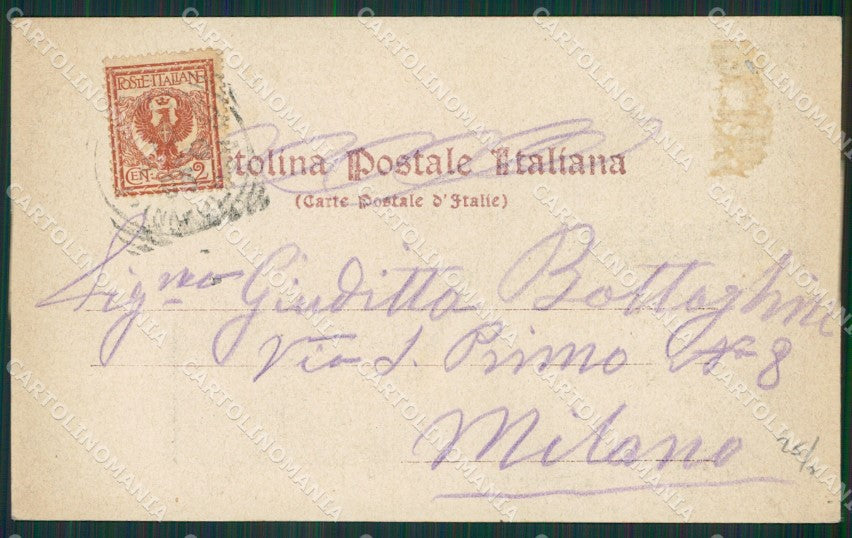 POSTE ITALIANE
CEN. 2
tolina Postale Italiana
(Carte Postale d'Italie)
Sig.na Giuditta Bottaghini
Via S. Primo No 8
Milano
CARTOLINOMANIA